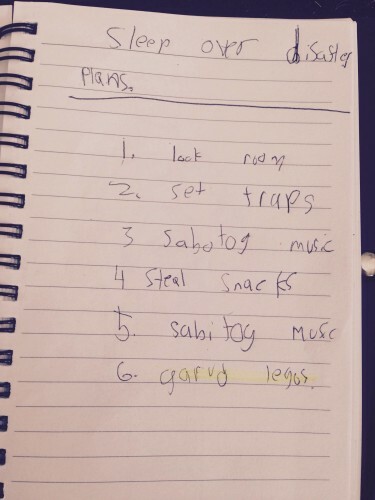 Sleep over disaster
Plans.
1. lock room
2. set traps
3 Sabotog music
4 Steal snacks
5. sabitog music
6. garud legos.